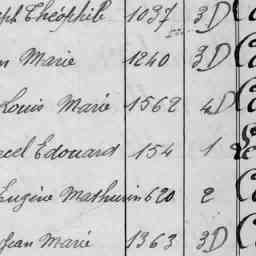 ph Théophile 1037 3D
n Marie 1240 3D
Louis Marie 1562 4D
cel Edouard 154 1
Eugène Mathurin 620 2
Jean Marie 1363 3D